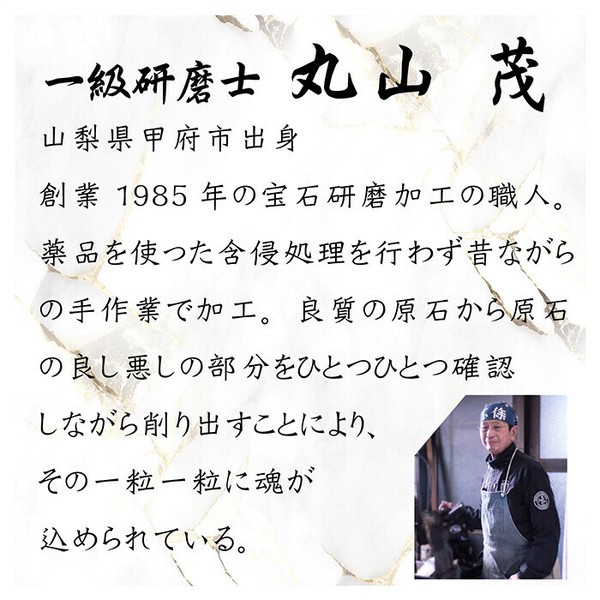 一級研磨士 丸山 茂
山梨県甲府市出身
創業 1985 年の宝石研磨加工の職人。
薬品を使つた含侵処理を行わず昔ながら
の手作業で加工。良質の原石から原石
の良し悪しの部分をひとつひとつ確認
しながら削り出すことにより、
その一粒一粒に魂が
込められている。